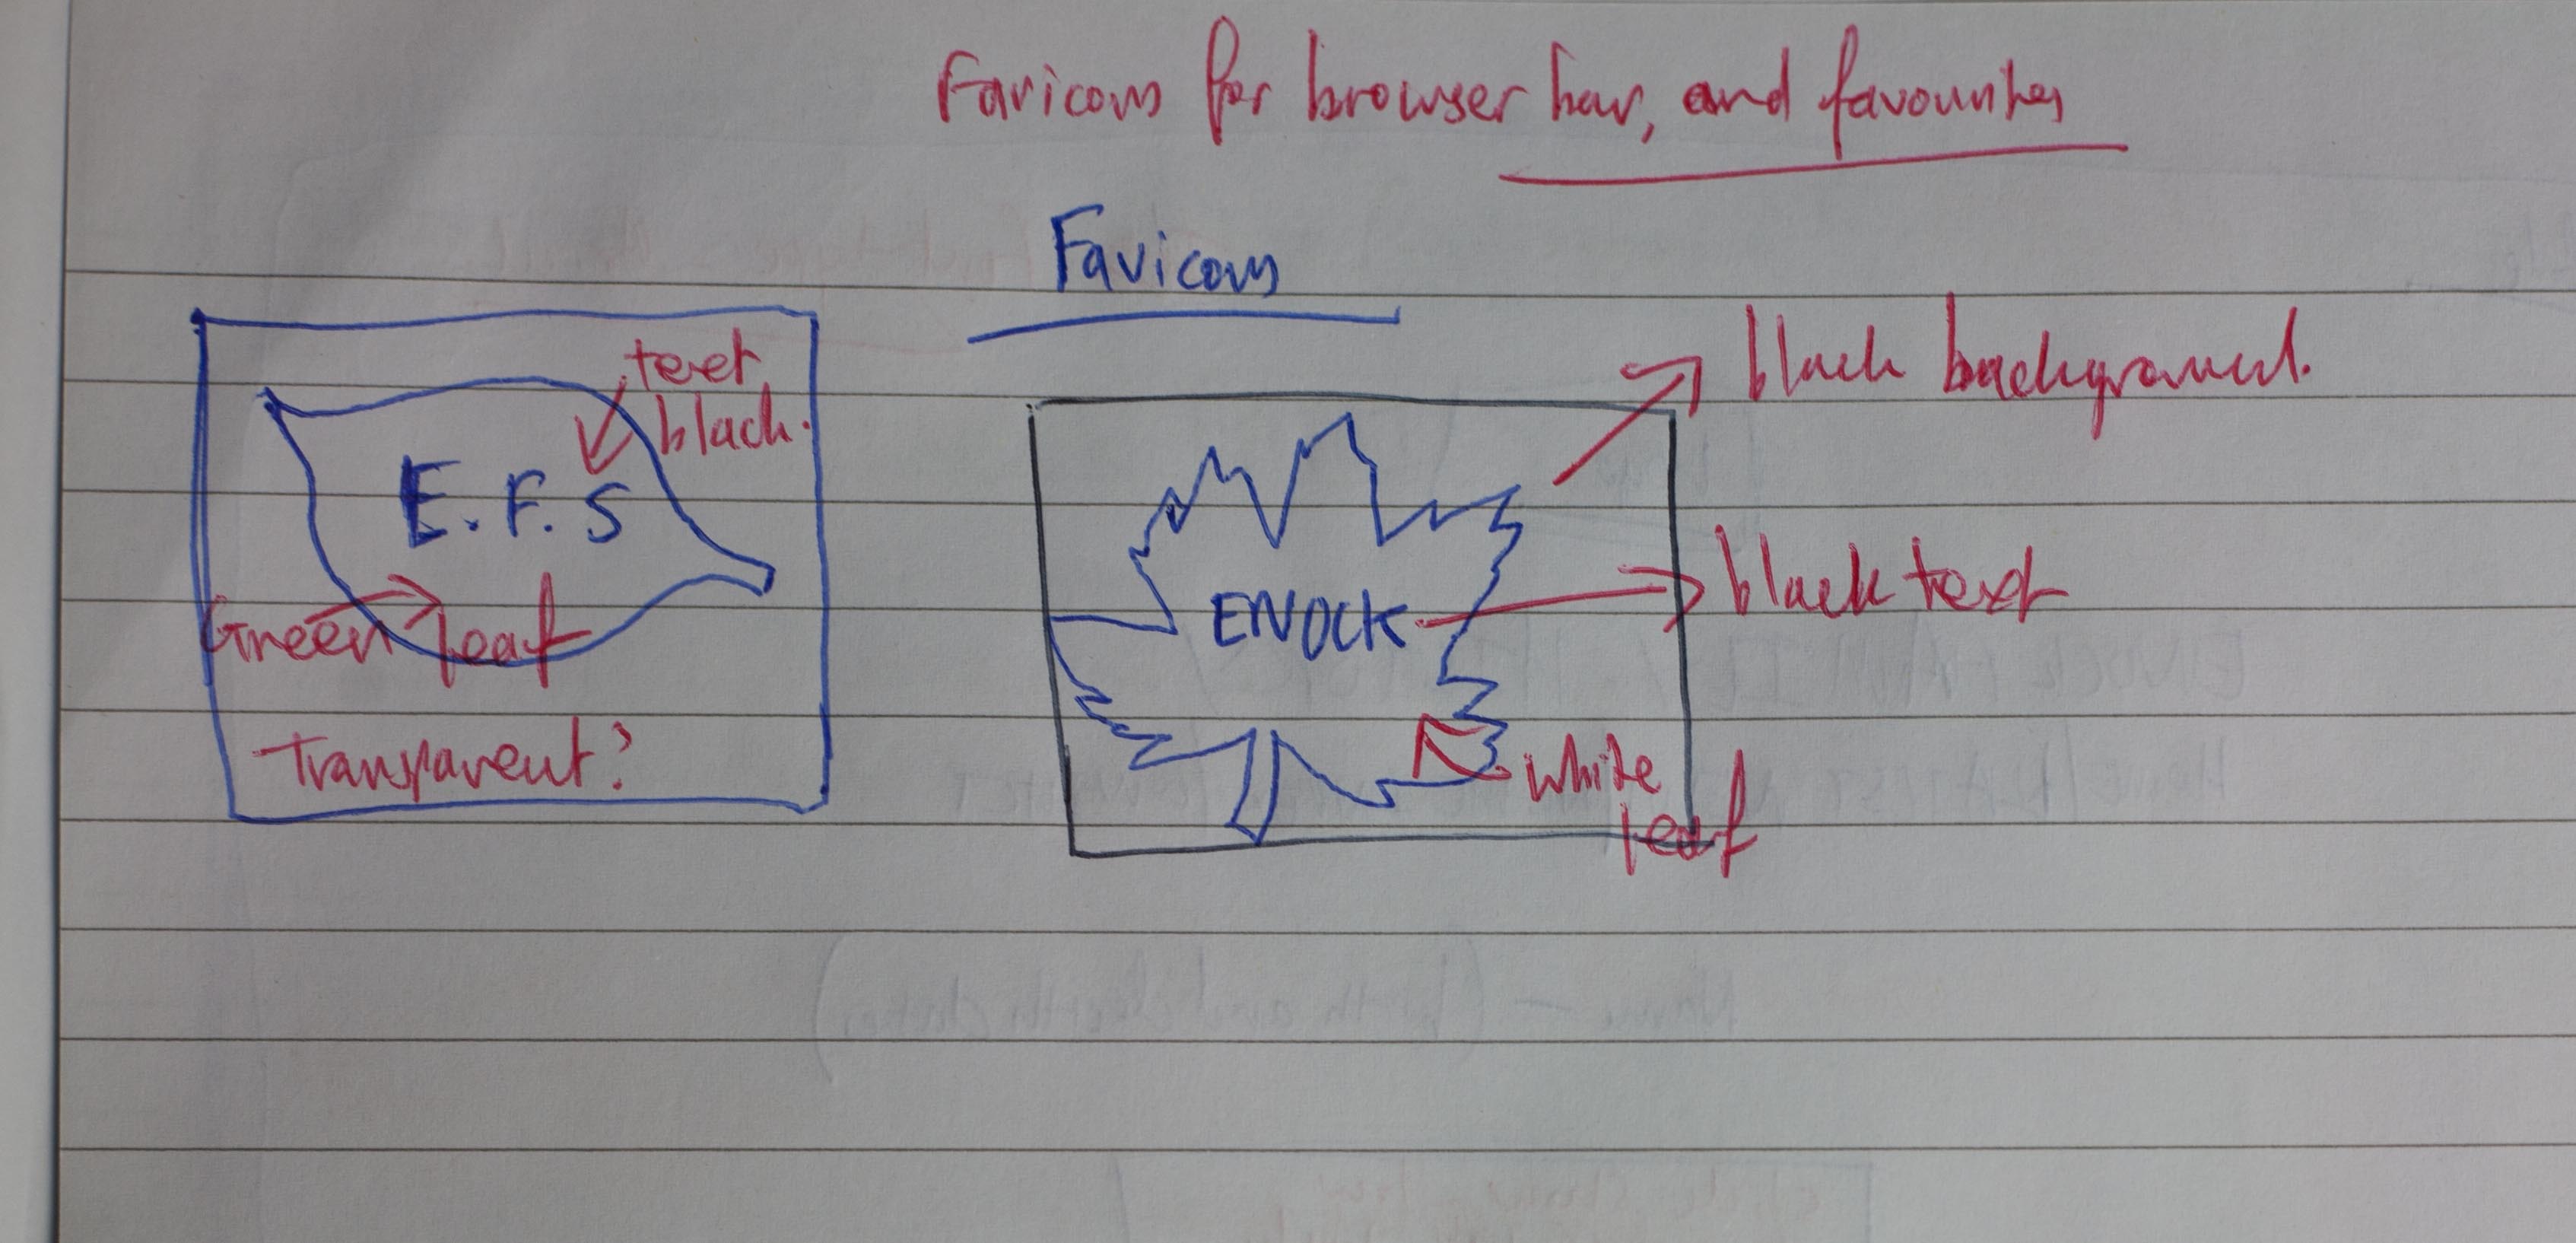 Favicons for browser bar, and favourites
Favicons
text
black.
E.F.S
Green leaf
Transparent?
black background.
ENOCK
black text
white
leaf